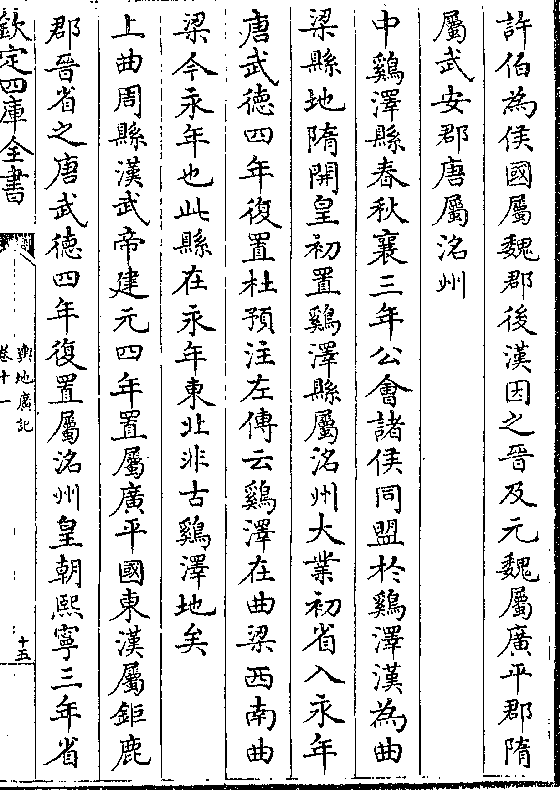 許伯為侯國屬魏郡後漢因之晉及元魏屬廣平郡隋
屬武安郡唐屬洺州
中鷄澤縣春秋襄三年公會諸侯同盟於鷄澤漢為曲
梁縣地隋開皇初置鷄澤縣屬洺州大業初省入永年
唐武德四年復置杜預注左傳云鷄澤在曲梁西南曲
梁今永年也此縣在永年東北非古鷄澤地矣
上曲周縣漢武帝建元四年置屬廣平國東漢屬鉅鹿
郡晉省之唐武德四年復置屬洺州皇朝熙寧三年省
欽定四庫全書
輿地廣記
卷十一
十五